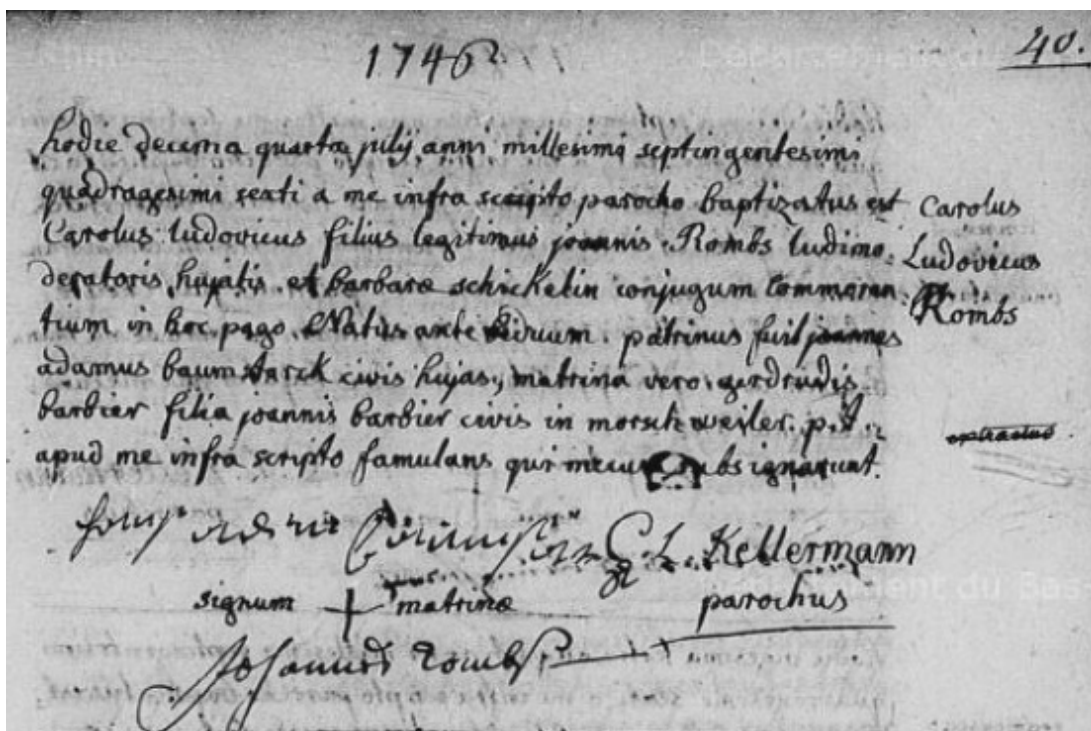 1746
40.
hodie decima quarta julij anni millesimi septingentesimi
quadragesimi sexti a me infra scripto parocho baptizatus est
Carolus ludovicus filius legitimus joannis Rombs ludimo-
deratoris hujatis et barbarae schickelin conjugum Commoran-
tium in hoc pago. Natus ante biduum. patrinus fuit joannes
adamus baumstarck civis hujas, matrina vero gerdrudis
barbier filia joannis barbier civis in morschweiler. p.t.
apud me infra scripto famulans qui mecum subsignarunt.
Carolus
Ludovicus
Rombs
extractus
C. L. Kellermann
signum + matrinae parochus
Johannes rombs